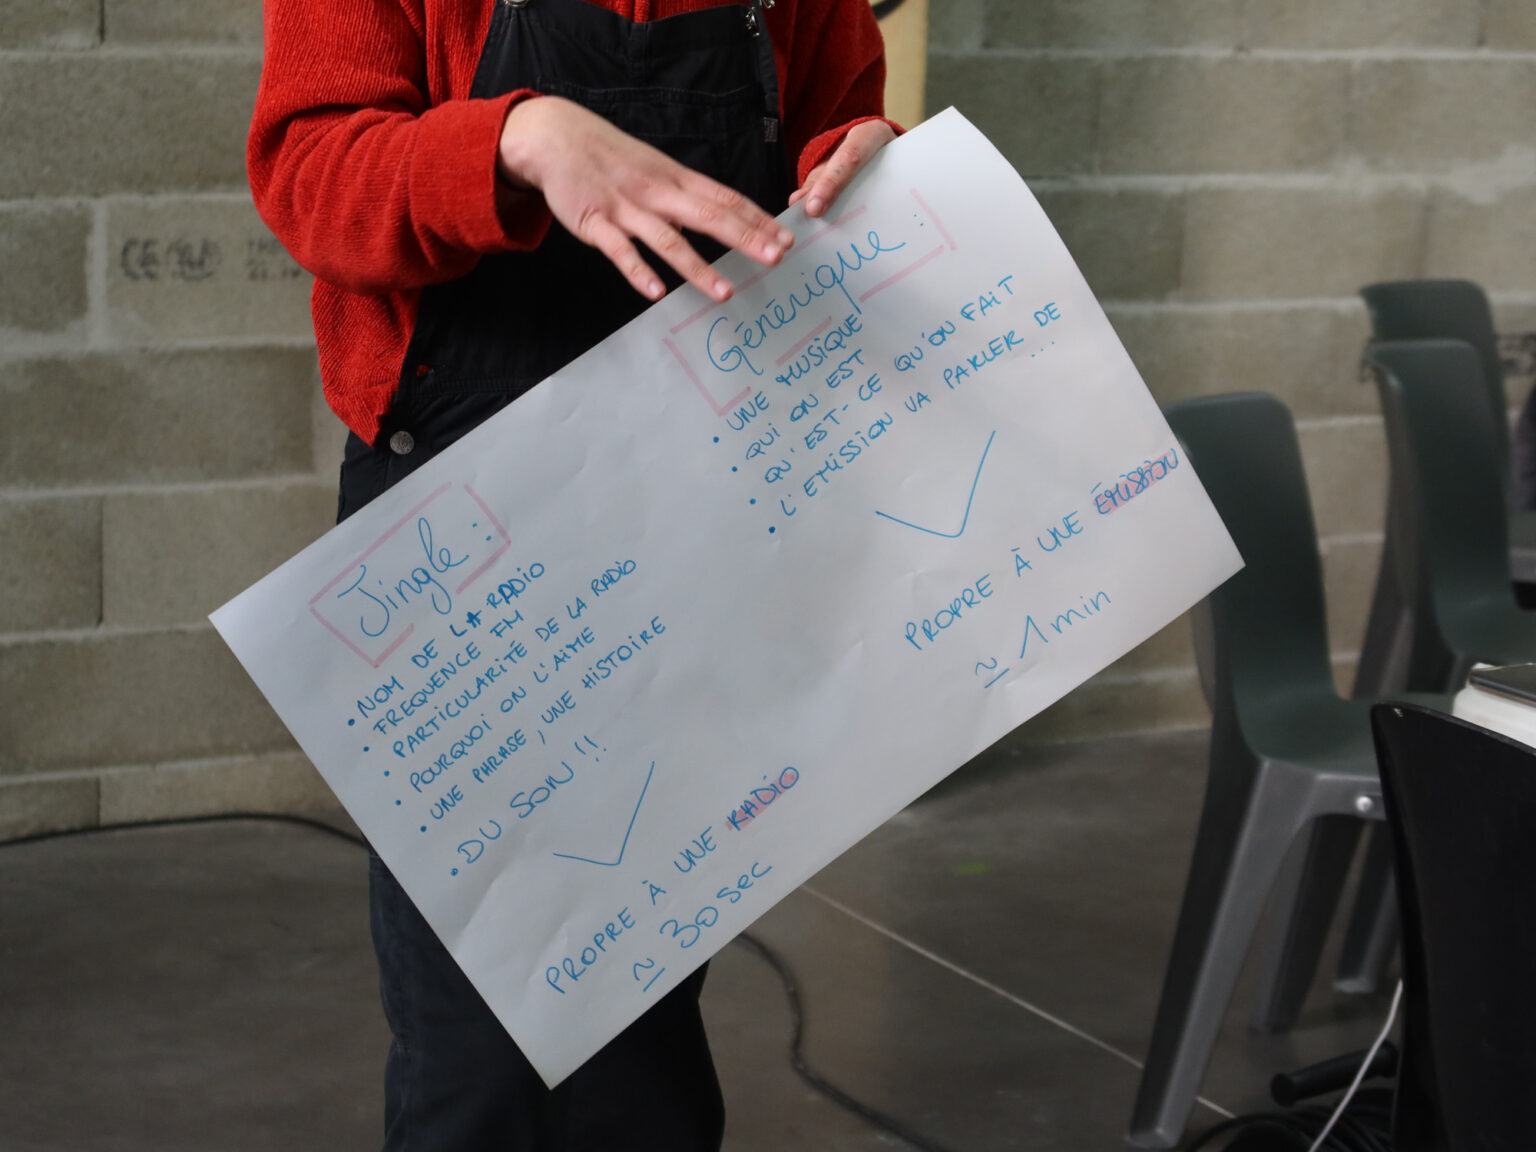 Jingle :
• NOM DE LA RADIO
• FREQUENCE FM
• PARTICULARITÉ DE LA RADIO
• POURQUOI ON L'AIME
• UNE PHRASE, UNE HISTOIRE
• DU SON !!
PROPRE À UNE RADIO
~ 30 sec
Générique :
• UNE MUSIQUE
• QUI ON EST
• QU'EST-CE QU'ON FAIT
• L'EMISSION VA PARLER DE ...
PROPRE À UNE ÉMISSION
~ 1 min
CE